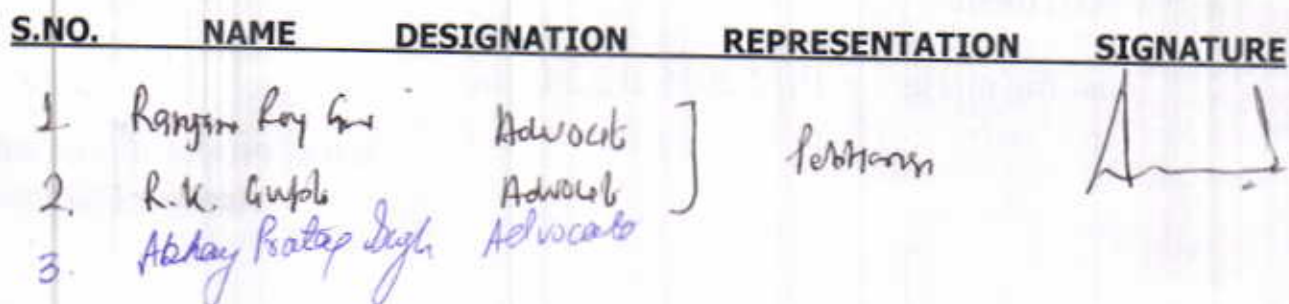 S.NO. NAME DESIGNATION REPRESENTATION SIGNATURE
1 Ranjan Roy Advocate
Petitioner
2. R.K. Gupta Advocate
3. Abhay Pratap Singh Advocate